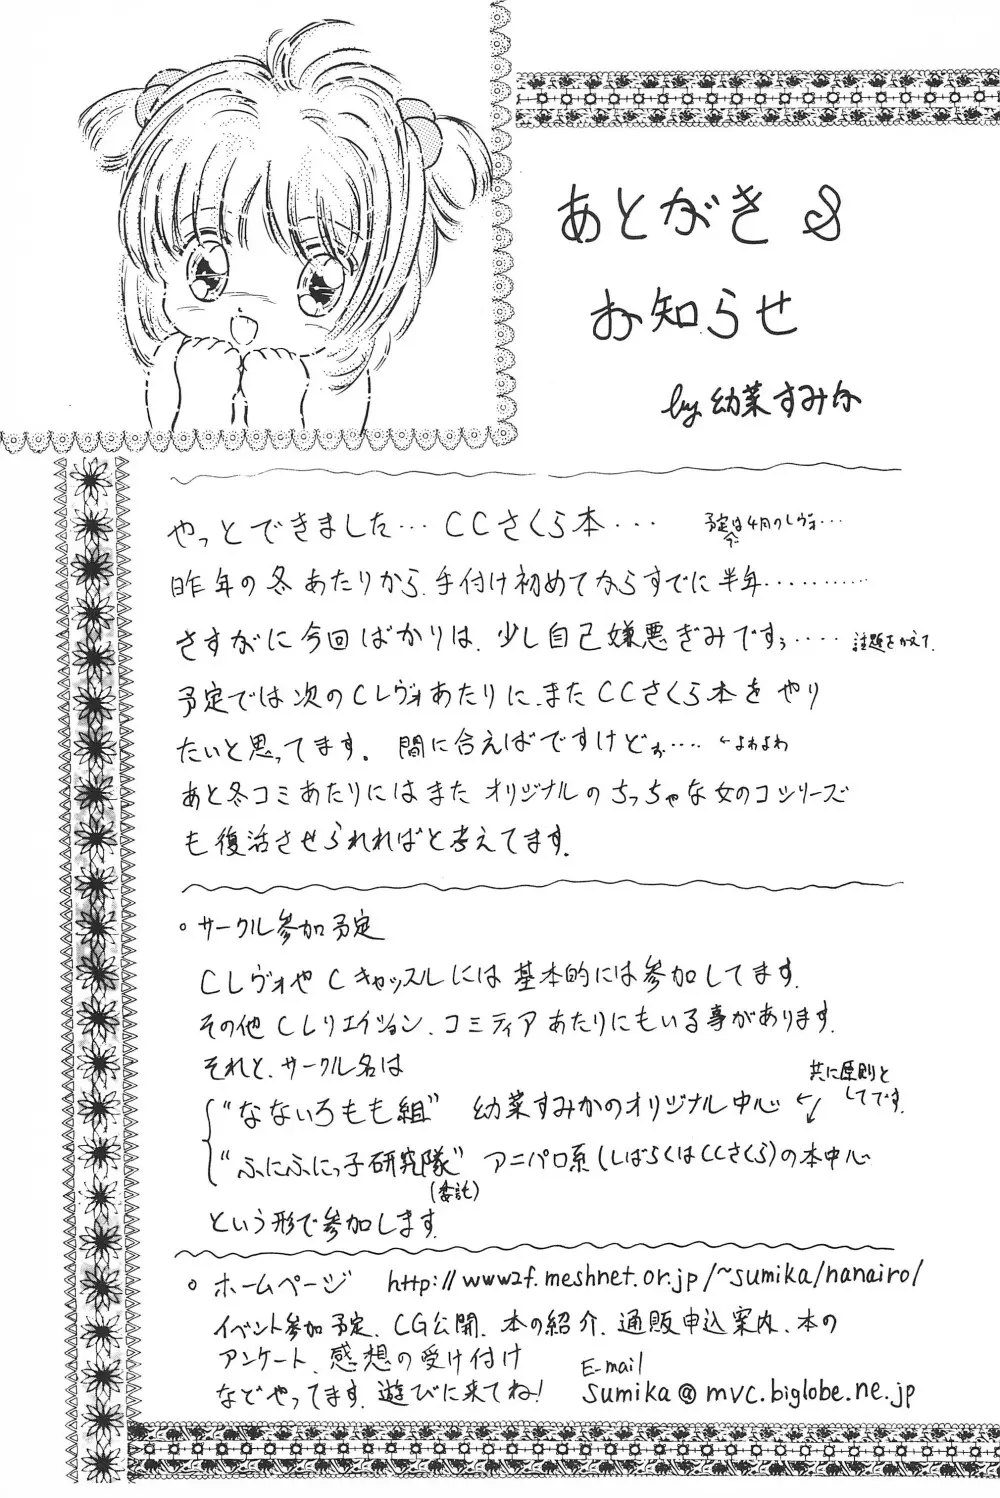 あとがき&
お知らせ
by 幼菜すみか
やっとできました… CCさくら本… 予定では4月のレヴォ…
昨年の冬あたりから、手付け初めてならすでに半年…………
さすがに今回ばかりは、少し自己嫌悪ぎみですぅ…… 話題をかえて、
予定では次のCレヴォあたりに、またCCさくら本をやり
たいと思ってます。間に合えばですけどぉ…… ←よわよわ
あと冬コミあたりにはまたオリジナルのちっちゃな女のコシリーズ
も復活させられればと考えてます。
○サークル参加予定
CレヴォやCキャッスルには基本的には参加してます。
その他Cレリエイション、コミティアあたりにもいる事があります。
それと、サークル名は
共に原則と
してです。
"なないろもも組" 幼菜すみかのオリジナル中心 ←↙
"ふにふにっ子研究隊" アニパロ系(しばらくはCCさくら)の本中心
(委託)
という形で参加します。
○ホームページ http://www2f.meshnet.or.jp/~sumika/nanairo/
イベント参加予定、CG公開、本の紹介、通販申込案内、本の
アンケート、感想の受け付け
などやってます。遊びに来てね!
E-mail
sumika@mvc.biglobe.ne.jp